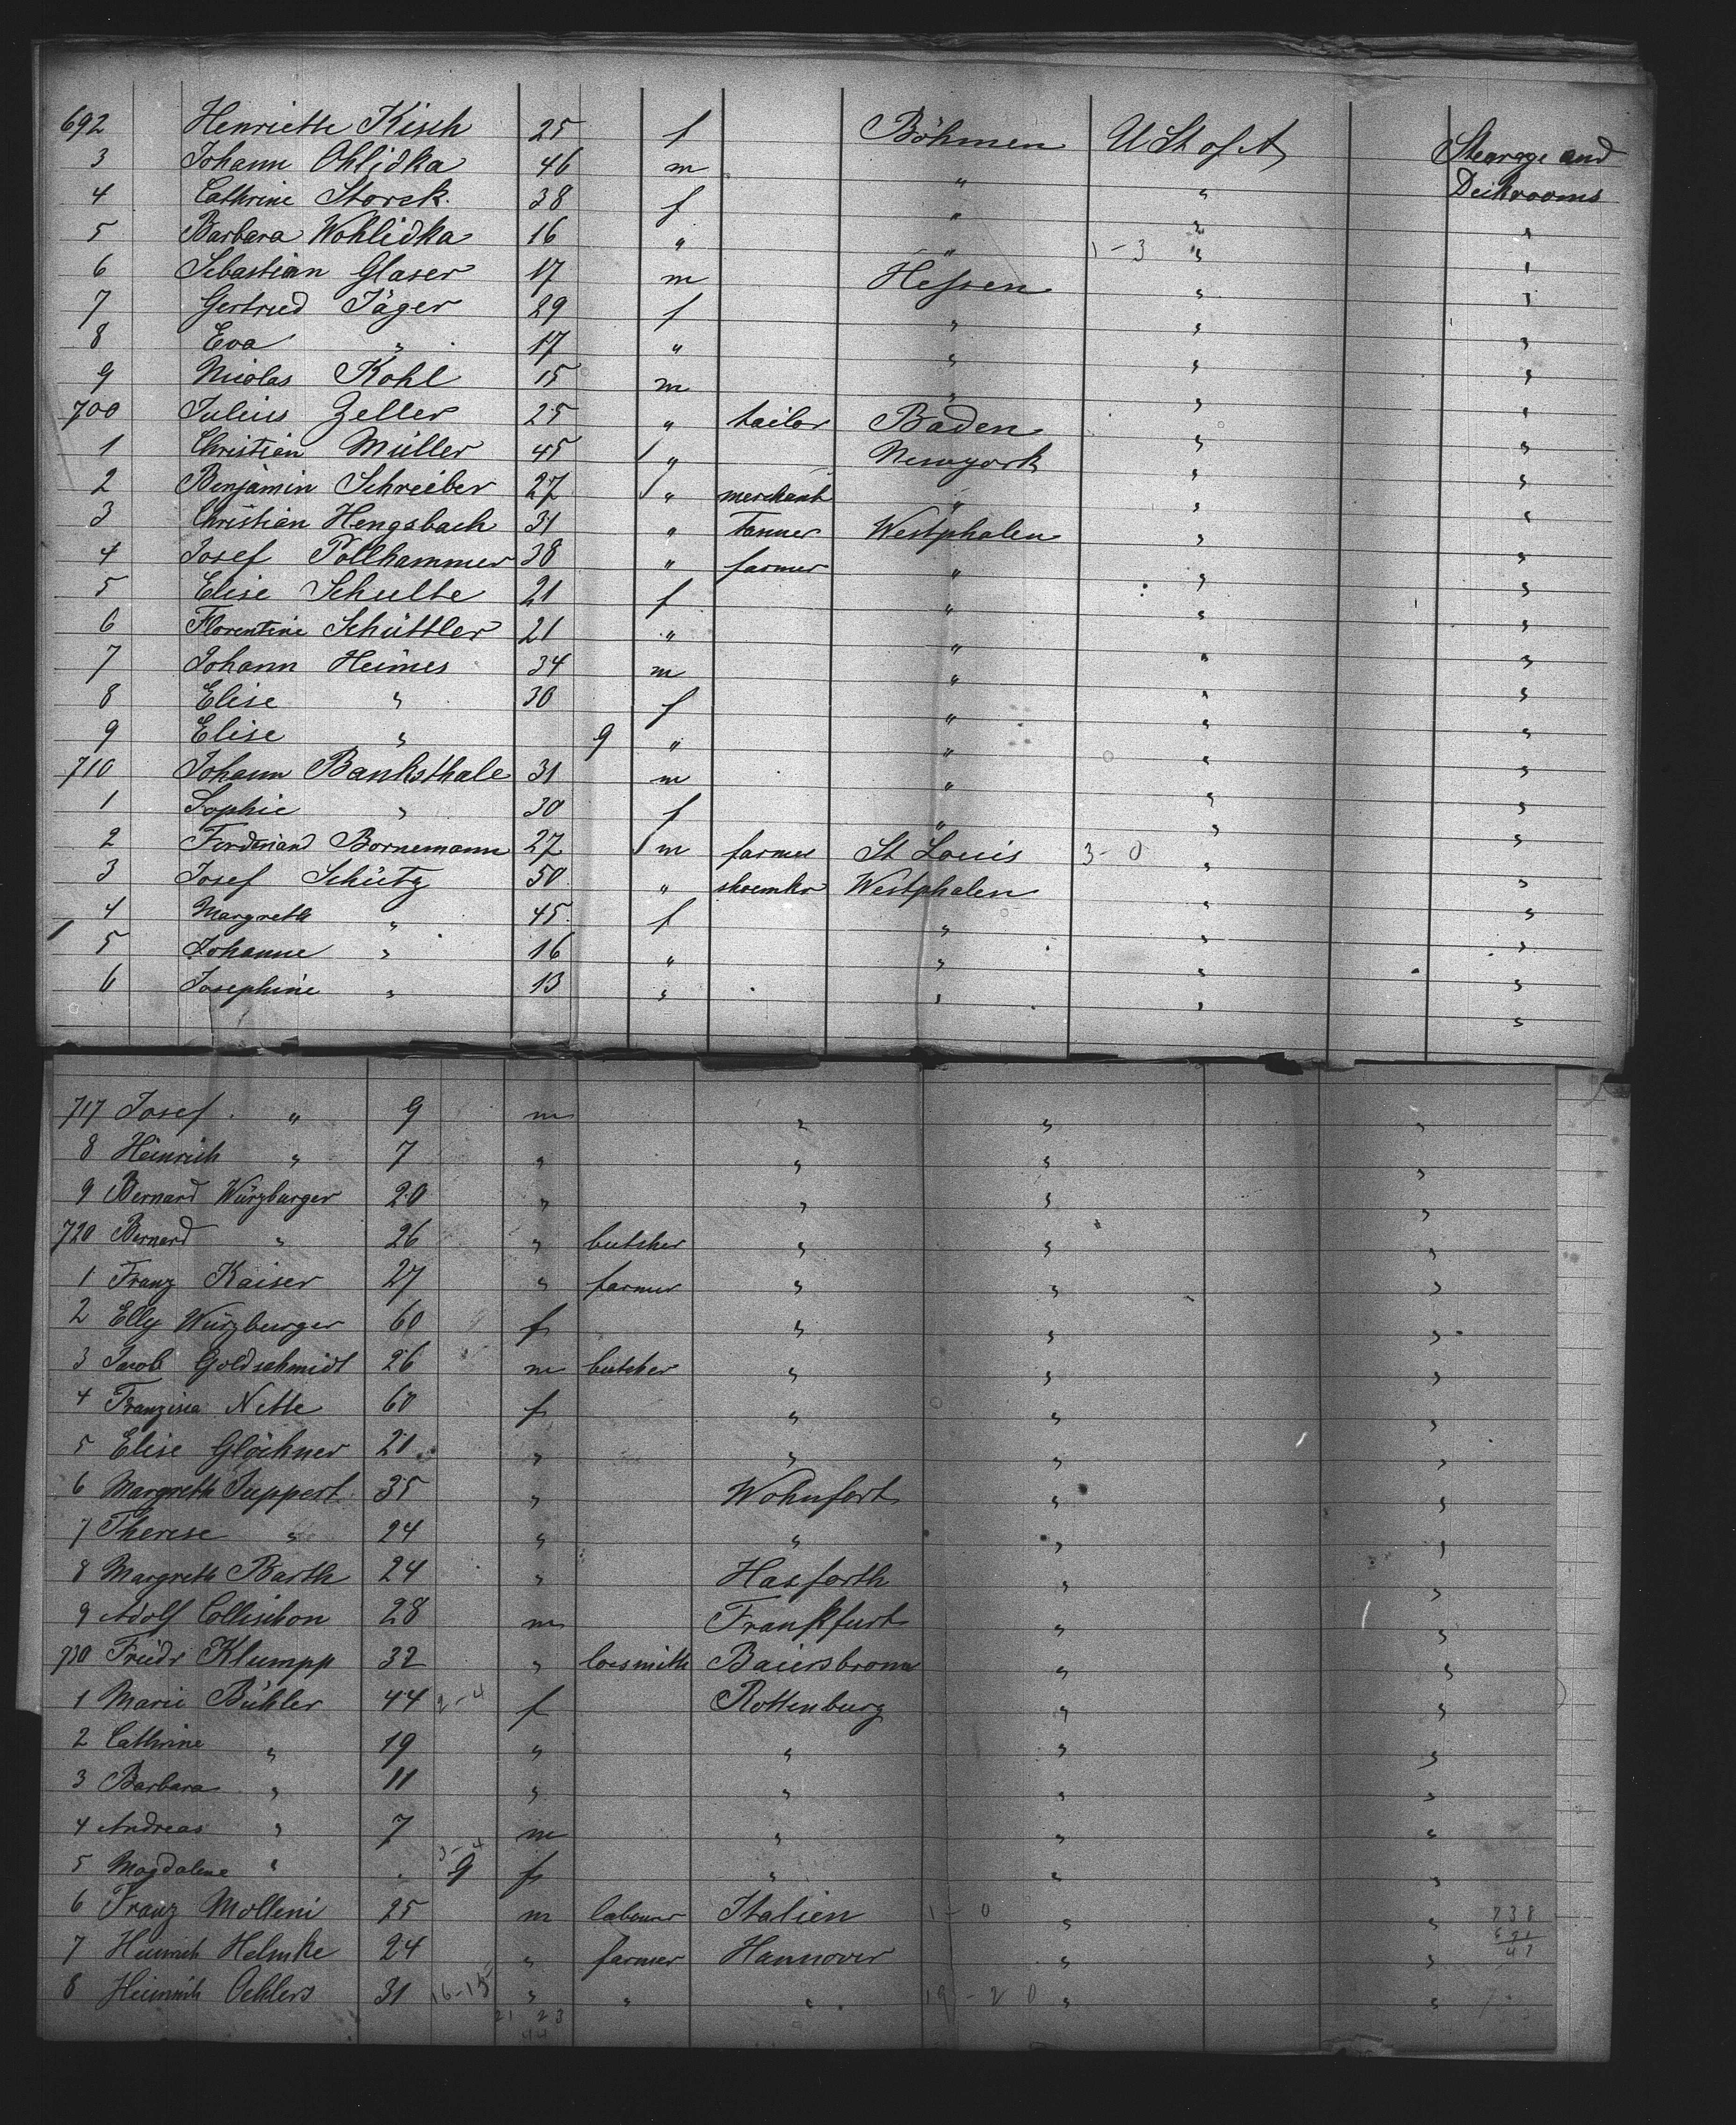 692 Henriette Kisch 25 f Böhmen U St of A Stearage and
3 Johann Ohlidka 46 m " " Deckrooms
4 Cathrine Storck 38 f " " "
5 Barbara Wohlidka 16 " " 1-3 " "
6 Sebastian Glaser 17 m Hessen " "
7 Gertrud Jäger 29 f " " "
8 Eva " 17 " " " "
9 Nicolas Kohl 15 m " " "
700 Julius Zeller 25 " tailor Baden " "
1 Christian Müller 45 " Newyork " "
2 Benjamin Schreiber 27 " merchant " " "
3 Christian Hengsbach 31 " Tanner Westphalen " "
4 Josef Pollhammer 38 " farmer " " "
5 Elise Schulte 21 f " " "
6 Florentine Schüttler 21 " " " "
7 Johann Heimes 34 m " " "
8 Elise " 30 f " " "
9 Elise " 9 " " " "
710 Johann Banksthale 31 m " " "
1 Sophie " 30 f " " "
2 Ferdinand Bornemann 27 m farmer St Louis 3-0 " "
3 Josef Schütz 50 " shoemkr Westphalen " "
4 Margreth " 45 f " " "
5 Johanne " 16 " " " "
6 Josephine " 13 " " " "
717 Josef " 9 m " " "
8 Heinrich " 7 " " " "
9 Bernard Würzburger 20 " " " "
720 Bernard " 26 " butcher " " "
1 Franz Kaiser 27 " farmer " " "
2 Elly Würzburger 60 f " " "
3 Jacob Goldschmidt 26 m butcher " " "
4 Franzisca Nette 60 f " " "
5 Elise Glöckner 21 " " " "
6 Margreth Juppert 35 " Wohnfort " "
7 Therese " 24 " " " "
8 Margreth Barth 24 " Hasforth " "
9 Adolf Collischon 28 m Frankfurt " "
730 Friedr Klumpp 32 " locsmith Baiersbronn " "
1 Marie Bühler 44 2-4 f Rottenburg " "
2 Cathrine " 19 " " " "
3 Barbara " 11 " " " "
4 Andreas " 7 m " " "
5 Magdalene " 3-4 9 f " " "
6 Franz Molleni 25 m labourer Italien 1-0 " " 738
7 Heinrich Helmke 24 " farmer Hannover " " 691
47
8 Heinrich Oehlers 31 16-15 " " " 19-20 " "
21 23
44